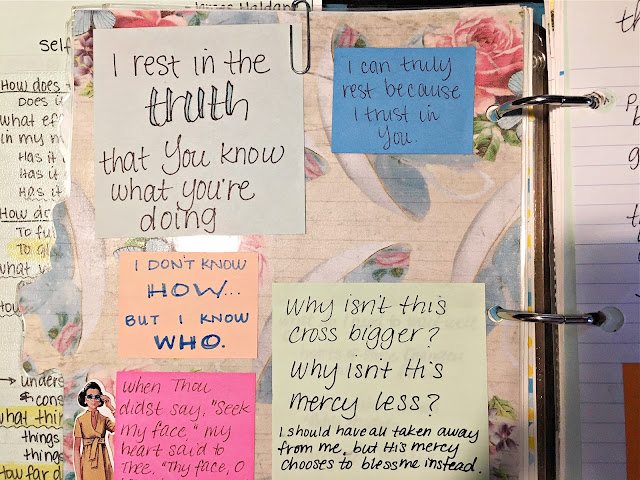 Self
How does
Does i
what ef
in my m
Has it
Has it
Has it
How do
To fu
To
what
How
→ unders
& cons
what thin
things
things
How far d
I rest in the
truth
that You know
what you're
doing
I can truly
rest because
I trust in
You.
I DON'T KNOW
HOW...
BUT I KNOW
WHO.
When Thou
didst say, "Seek
my face," my
heart said to
Thee, "Thy face, O
Why isn't this
cross bigger?
Why isn't His
mercy less?
I should have all taken away
from me, but His mercy
chooses to bless me instead.